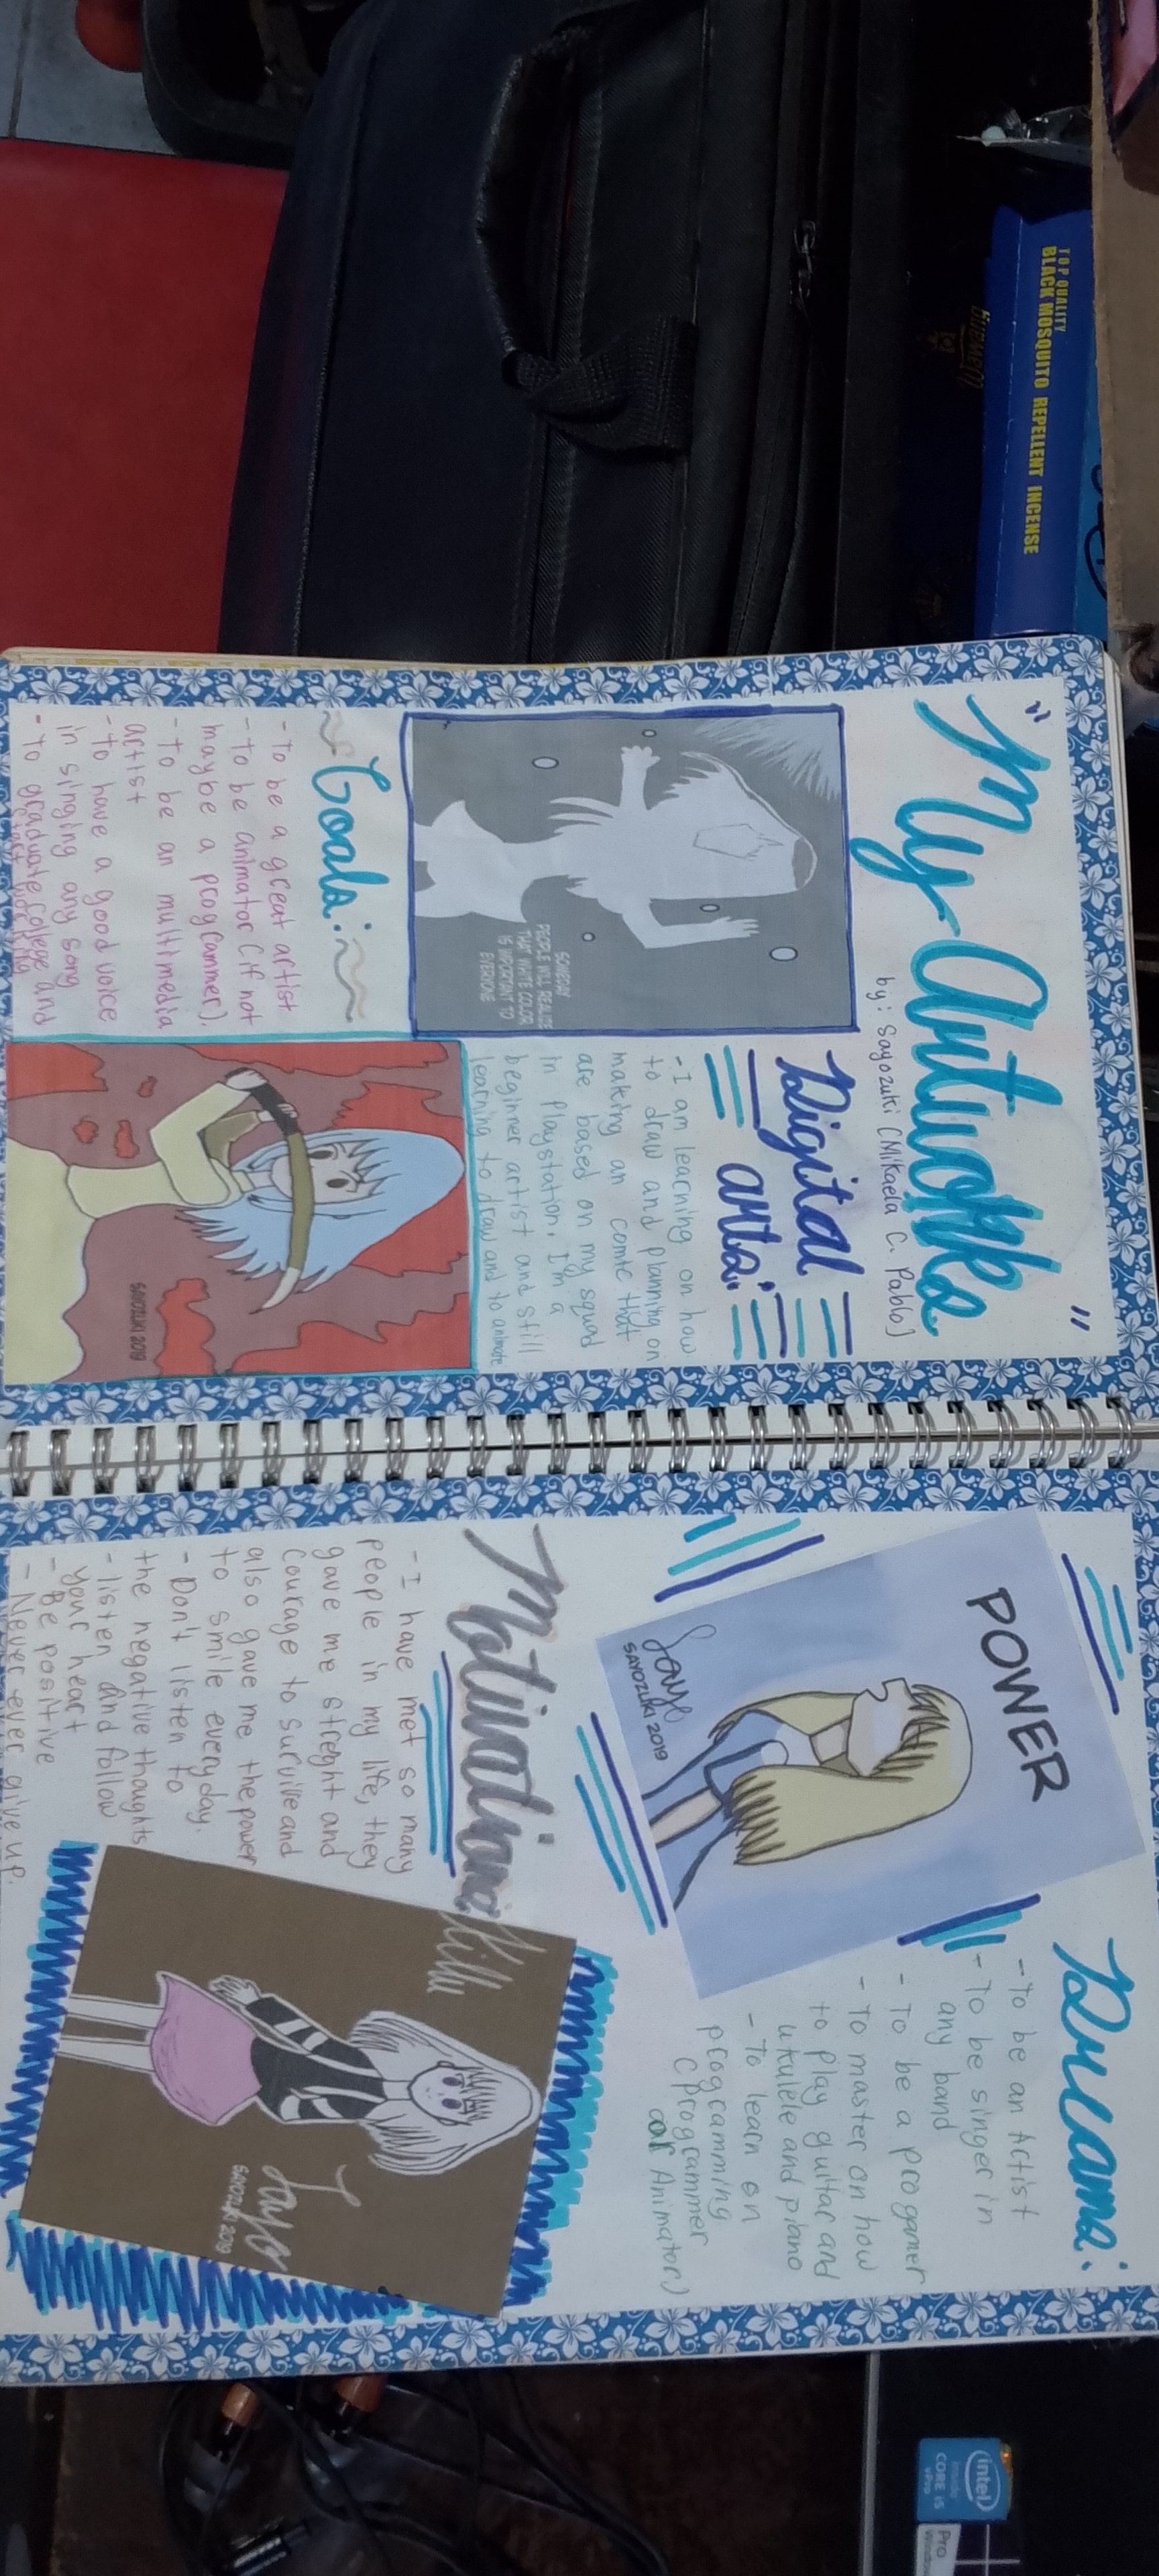 TOP QUALITY
BLACK MOSQUITO REPELLENT INCENSE
"My Artworks"
by: Sayozuki (Mikaela C. Pablo)
SOMEDAY
PEOPLE WILL REALIZE
THAT WHITE COLOR
IS IMPORTANT TO
EVERYONE
Digital
arts:
- I am learning on how
to draw and planning on
making an comic that
are based on my squad
in playstation. I'm a
beginner artist and still
learning to draw and to animate
Goals:
- To be a great artist
- To be animator (if not
maybe a programmer).
- To be an multimedia
artist
- To have a good voice
in singing any song
- To graduate college and
start working
SAYOZUKI 2019
POWER
Saye
SAYOZUKI 2019
Dreams:
- To be an Artist
- To be singer in
any band
- To be a progamer
- To master on how
to play guitar and
ukulele and piano
- To learn on
programming
(programmer
or Animator)
Motivations
- I have met so many
people in my life, they
gave me streght and
courage to survive and
also gave me the power
to smile everyday.
- Don't listen to
the negative thoughts
- listen and follow
your heart
- Be positive
- Never ever give up.
SAYOZUKI 2019
intel
inside
CORE i5
vPro
Pro